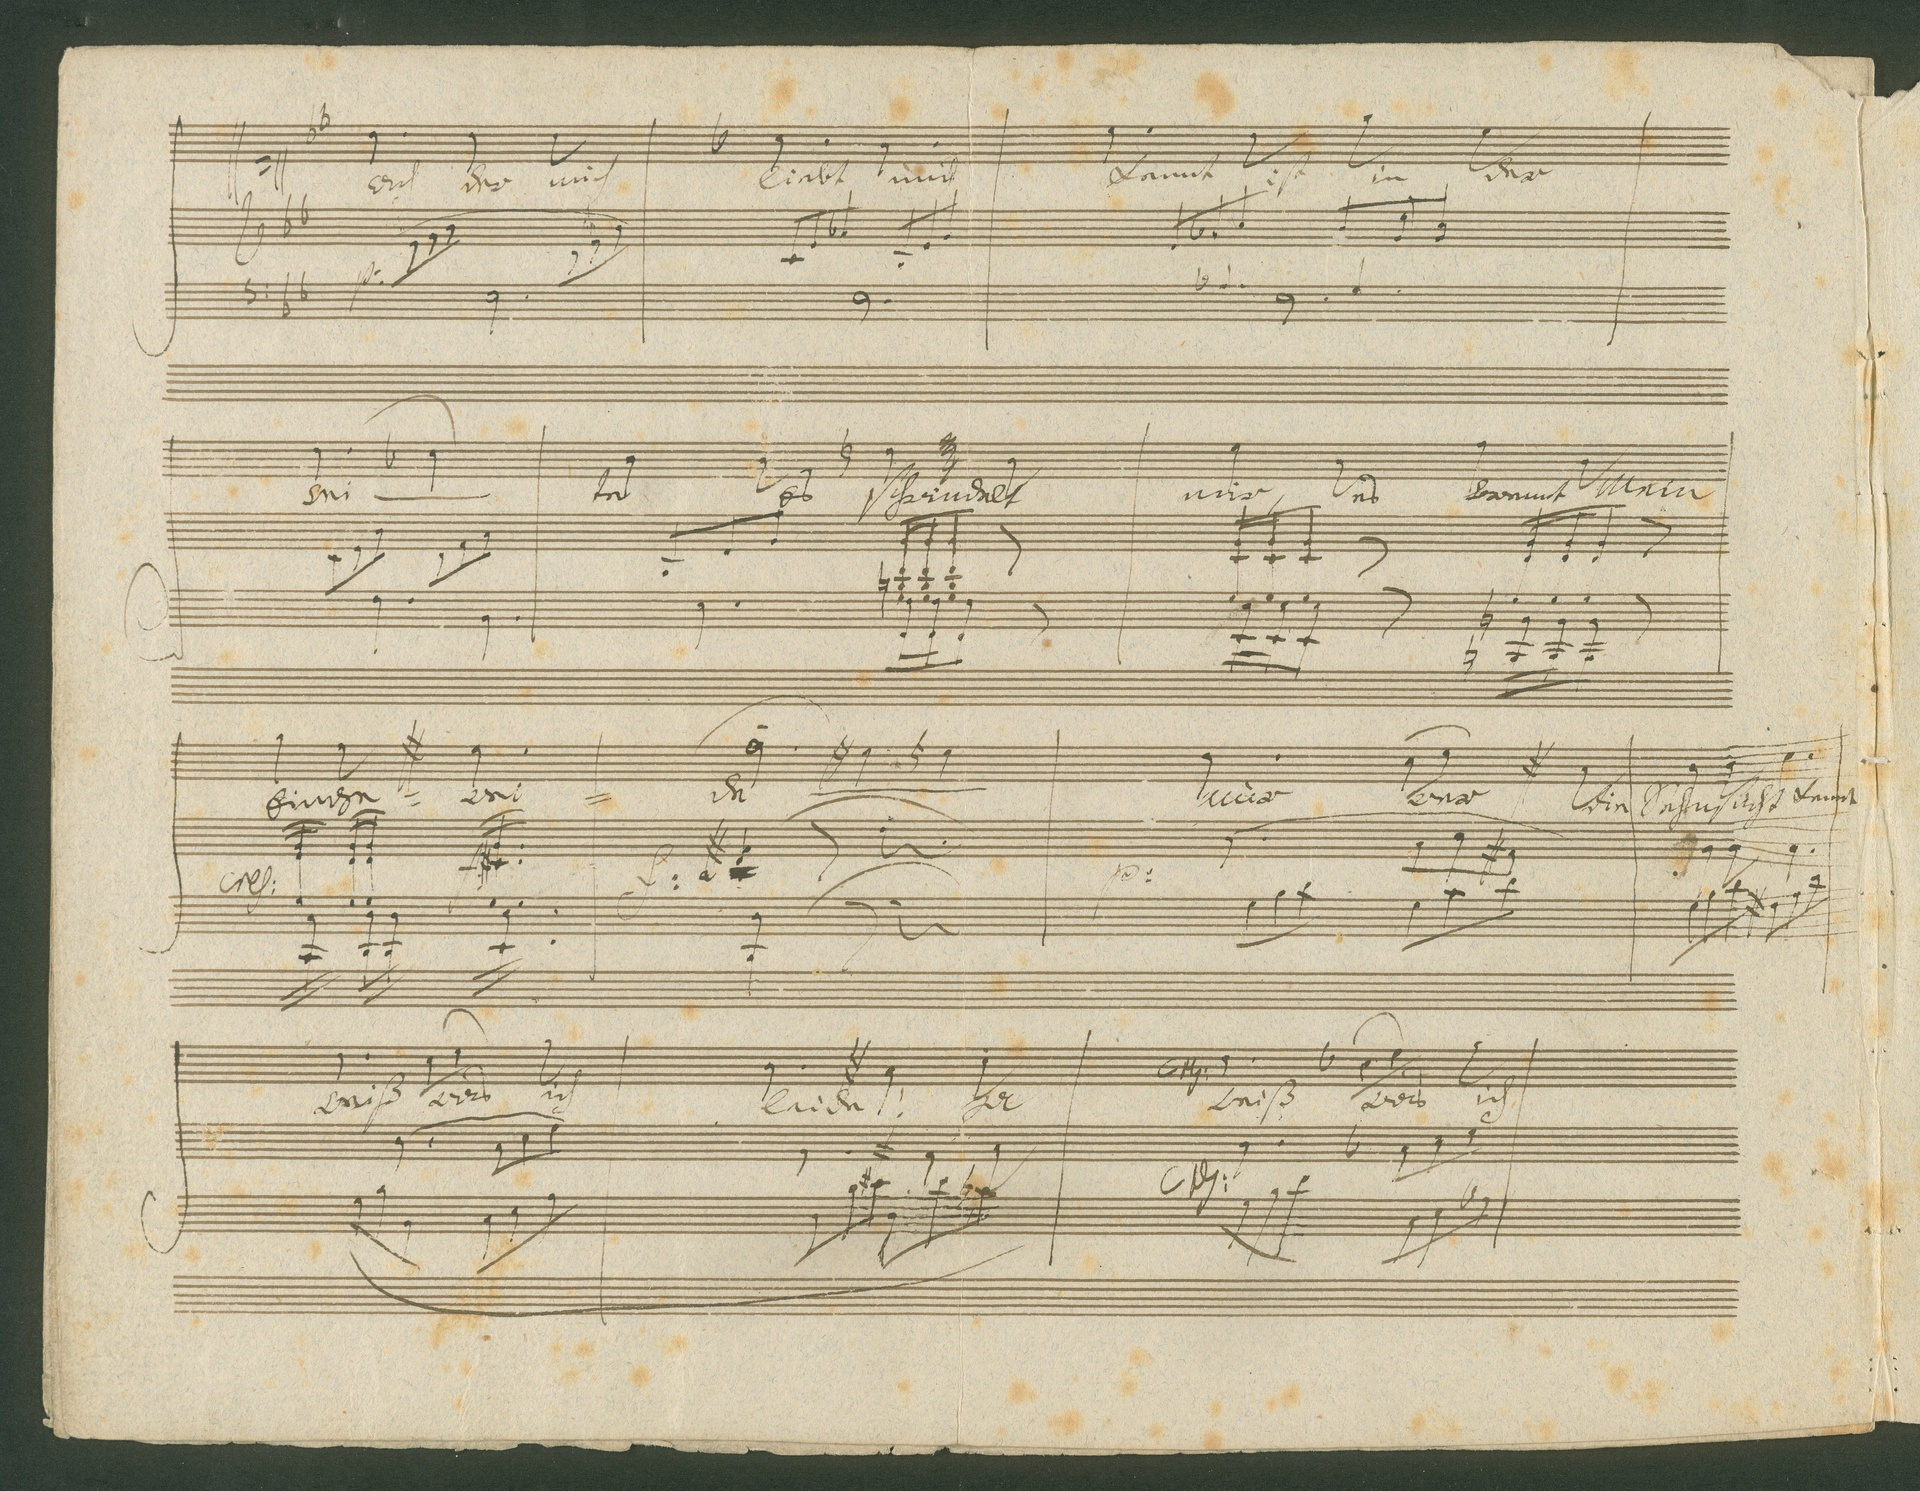 ach der mich liebt und kennt ist in der
wei — te es schwindelt mir, es brennt mein
cresc:
Eingewei = de
nur wer die Sehnsucht kennt
p:
weiß was ich leide! Er weiß was ich